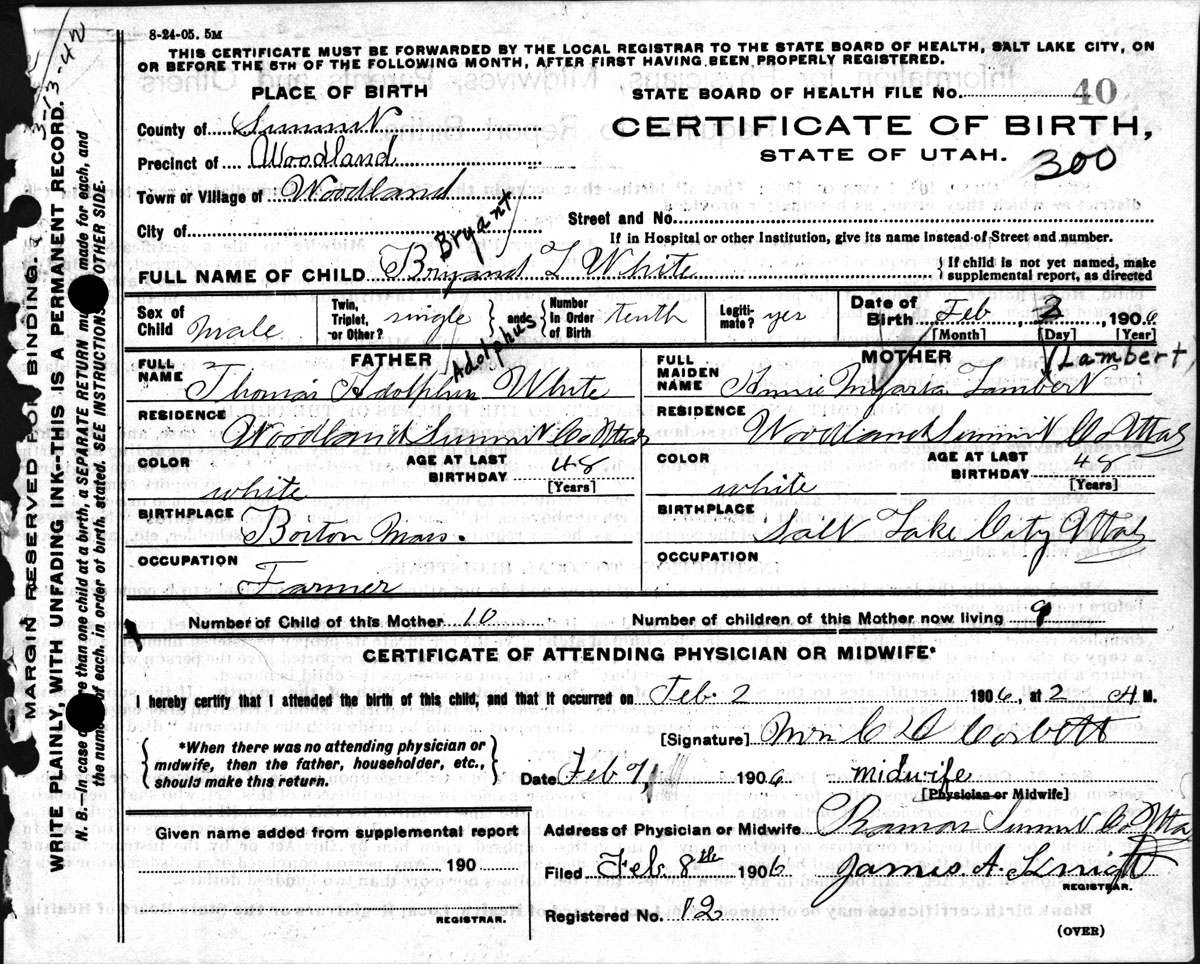 8-24-05. 5M
THIS CERTIFICATE MUST BE FORWARDED BY THE LOCAL REGISTRAR TO THE STATE BOARD OF HEALTH, SALT LAKE CITY, ON
OR BEFORE THE 5TH OF THE FOLLOWING MONTH, AFTER FIRST HAVING BEEN PROPERLY REGISTERED.
PLACE OF BIRTH
STATE BOARD OF HEALTH FILE No. 40
County of Summit
CERTIFICATE OF BIRTH,
Precinct of Woodland
STATE OF UTAH. 300
Town or Village of Woodland
Street and No.
City of
If in Hospital or other Institution, give its name instead of Street and number.
Bryant
FULL NAME OF CHILD Bryand L White
{ If child is not yet named, make
supplemental report, as directed
Sex of Child Male
Twin, Triplet, or Other? single
{ and }
Number In Order of Birth tenth
Legiti- mate? yes
Date of Birth Feb, 2, 1906
[Month] [Day] [Year]
FATHER
Adolphus
FULL NAME Thomas Adolphus White
MOTHER
(Lambert)
FULL MAIDEN NAME Annie Lambert
RESIDENCE
Woodland Summit Co Utah
RESIDENCE
Woodland Summit Co Utah
COLOR white
AGE AT LAST BIRTHDAY 48 [Years]
COLOR white
AGE AT LAST BIRTHDAY [Years]
BIRTHPLACE
Boston Mass.
BIRTHPLACE
Salt Lake City Utah
OCCUPATION
Farmer
OCCUPATION
Number of Child of this Mother 10
Number of children of this Mother now living 9
CERTIFICATE OF ATTENDING PHYSICIAN OR MIDWIFE*
I hereby certify that I attended the birth of this child, and that it occurred on Feb 2 1906, at 2 A M.
{ *When there was no attending physician or
midwife, then the father, householder, etc.,
should make this return. }
[Signature] Corbett
Date Feb 7 1906 midwife
[Physician or Midwife]
Given name added from supplemental report
190
REGISTRAR.
Address of Physician or Midwife Summit Co Utah
Filed Feb. 8th 1906 James A.
REGISTRAR.
Registered No. 12
(OVER)
3-13-42
MARGIN RESERVED FOR BINDING.
WRITE PLAINLY, WITH UNFADING INK-THIS IS A PERMANENT RECORD.
N. B.—In case of more than one child at a birth, a SEPARATE RETURN must be made for each, and
the number of each, in order of birth, stated. SEE INSTRUCTIONS ON OTHER SIDE.